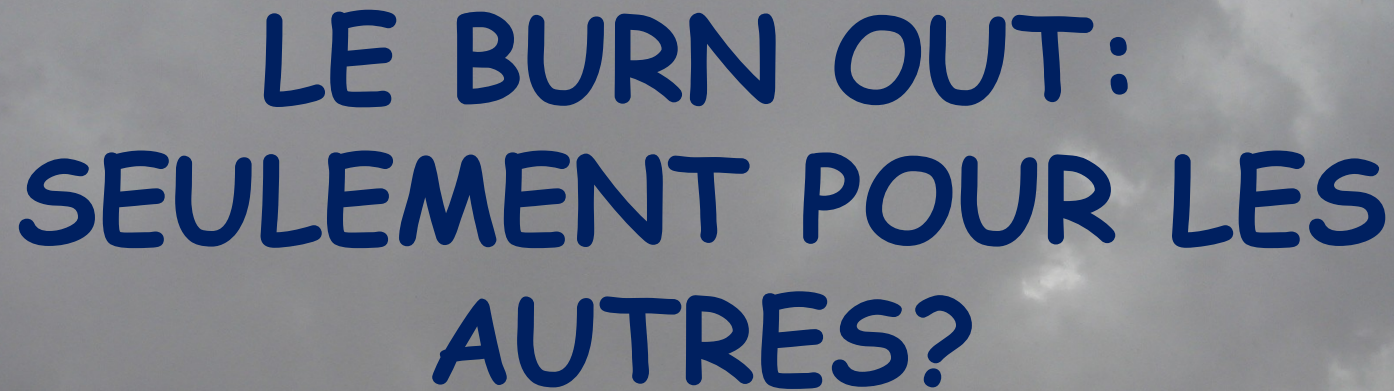 LE BURN OUT:
SEULEMENT POUR LES
AUTRES?